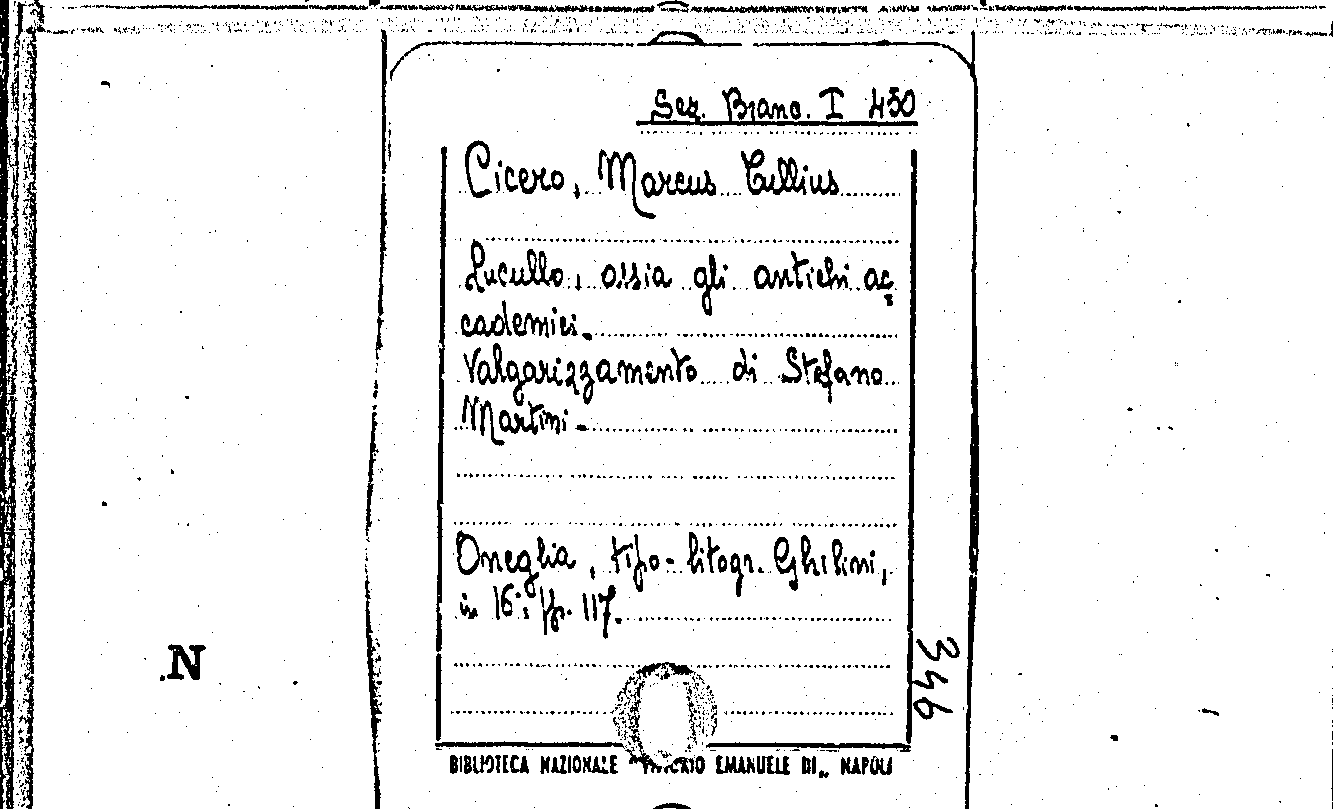 Sez. Branc. I 450
Cicero, Marcus Tullius
Lucullo, ossia gli antichi ac
cademici.
Valgarizzamento di Stefano
Martini.
Oneglia, tipo-litogr. Ghilini,
in 16°, pp. 117.
346
N
BIBLIOTECA NAZIONALE "VITTORIO EMANUELE III„ NAPOLI